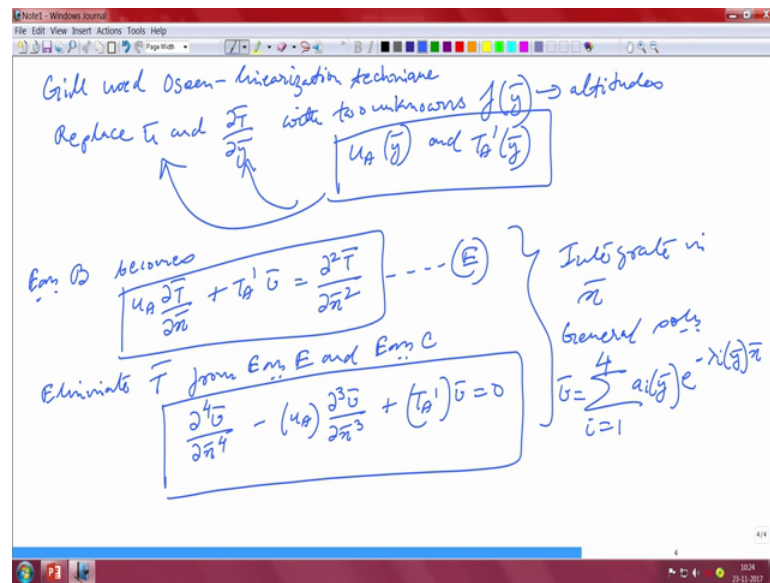 Note1 - Windows Journal
File Edit View Insert Actions Tools Help
Page Width
Gill used Oseen-linearization technique
Replace ū and ∂T̄/∂ȳ with two unknowns f(ȳ) → altitudes
u_A(ȳ) and T_A'(ȳ)
Eqn B becomes
u_A ∂T̄/∂x̄ + T_A' ῡ = ∂²T̄/∂x̄² ---- (E)
Eliminate T̄ from Eqn E and Eqn C
∂⁴ῡ/∂x̄⁴ - (u_A) ∂³ῡ/∂x̄³ + (T_A') ῡ = 0
Integrate in
x̄
General soln
ῡ = ∑_{i=1}^{4} a_i(ȳ) e^{-λ_i(ȳ) x̄}
4/4
4
10:24
23-11-2017